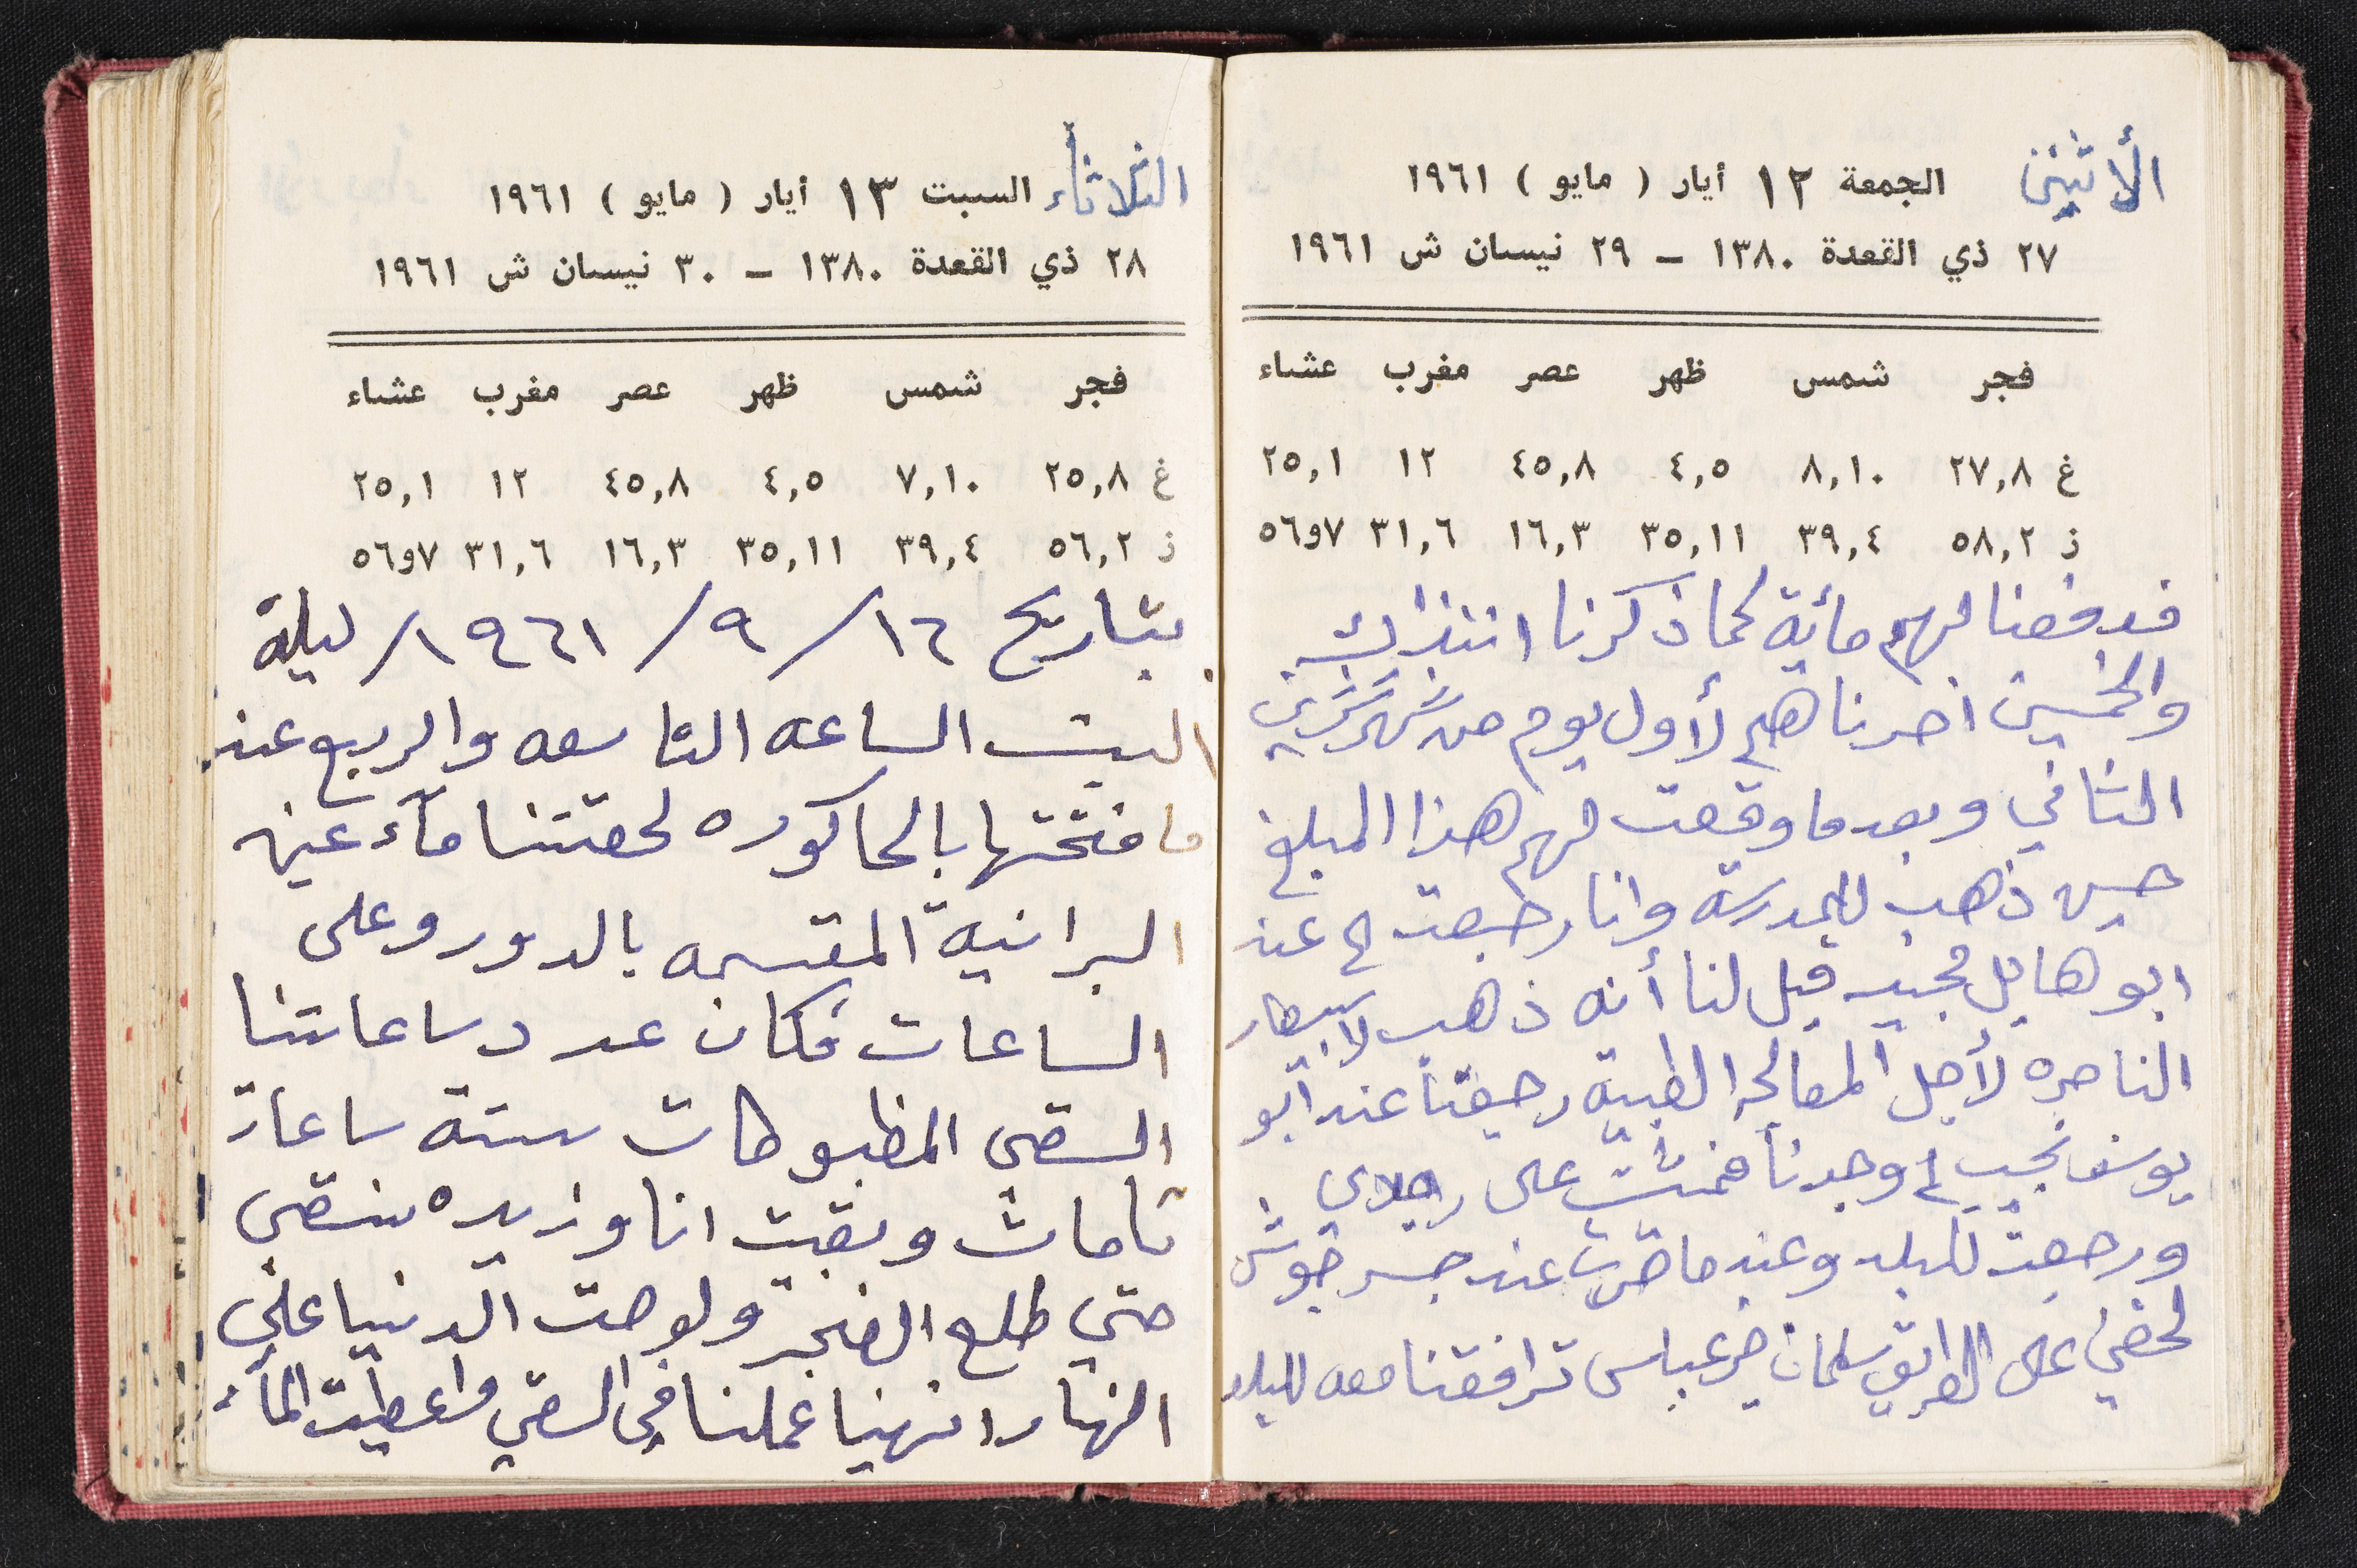 الأثنين الجمعة ١٢ أيار ( مايو ) ١٩٦١
٢٧ ذي القعدة ١٣٨٠ – ٢٩ نيسان ش ١٩٦١
فجر شمس ظهر عصر مغرب عشاء
غ ٢٧,٨ ٨,١٠ ٤,٥ ٤٥,٨ ١٢ ٢٥,١
ز ٥٨,٢ ٣٩,٤ ٣٥,١١ ١٦,٣ ٣١,٦ ٧و٥٦
فدفعنا لهم مائة كما ذكرنا
والخمسين اخرناهم لأول يوم من شهر تشرين
الثاني وبعد ما وقعت لهم هذا المبلغ
حسن ذهب للمدرسة وانا رجعت عند
ابو هايل مجيد قيل لنا أنه ذهب لاسبطار
الناصره لأجل المعالجه الطبية رجعنا عند ابو
يوسف نجيب لم وجدنا فمشت على رجلاي
ورجعت للبلد وعندما صرت عند جسر قوش
لحقني على الطريق سلمان خير عباس ترافقنا معه للبلد
الثلاثاء السبت ١٣ أيار ( مايو ) ١٩٦١
٢٨ ذي القعدة ١٣٨٠ – ٣٠ نيسان ش ١٩٦١
فجر شمس ظهر عصر مغرب عشاء
غ ٢٥,٨ ٧,١٠ ٤,٥ ٤٥,٨ ١٢ ٢٥,١
ز ٥٦,٢ ٣٩,٤ ٣٥,١١ ١٦,٣ ٣١,٦ ٧و٥٦
بتاريخ ١٦/٩/١٩٦١/ ليلة
السبت الساعه التاسعه والربع عند
ما فتحتها بالحاكوره لحقتنا مآء عين
البرانية المقسمه بالدور وعلى
الساعات فكان عدد ساعاتنا
السقي المظبوطات ستة ساعات
تامات وبقيت انا وزيده نسقي
حتي طلع الفجر ولوحت الدنيا على
النهار انهينا عملنا في السقي واعطيت المآء